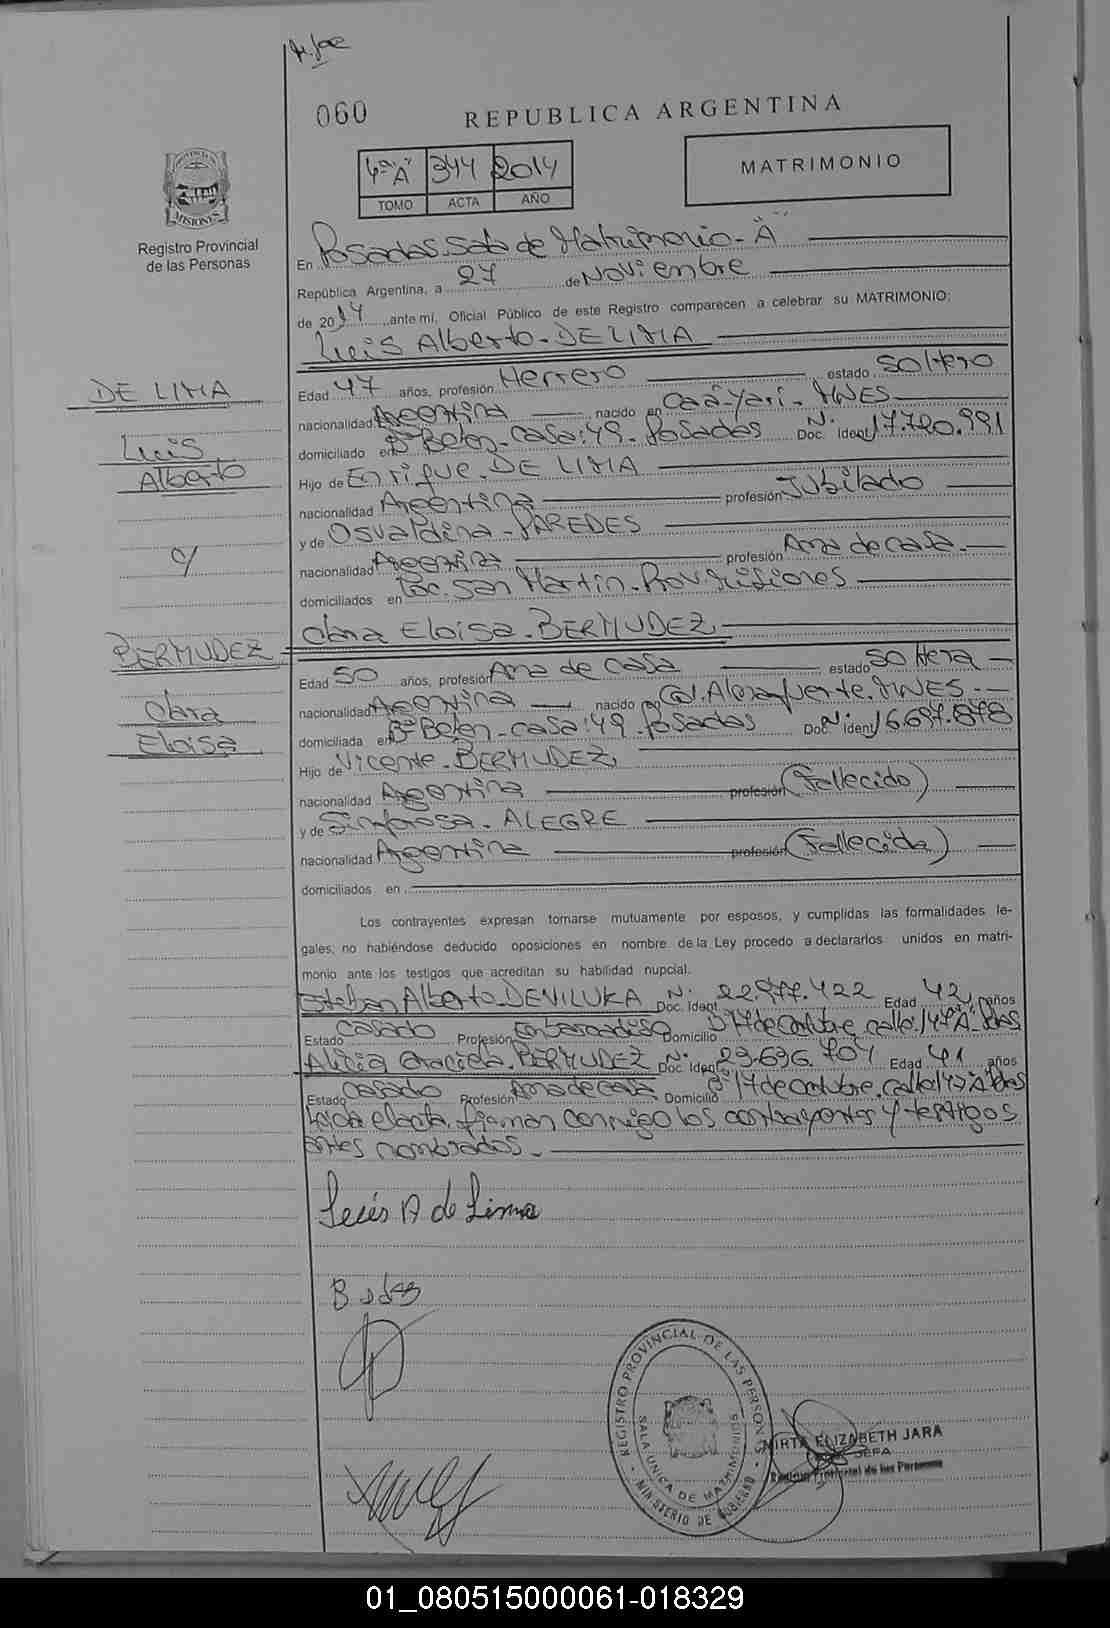 060
REPUBLICA ARGENTINA
4º"A" 344 2014
TOMO ACTA AÑO
MATRIMONIO
PROVINCIA DE MISIONES
Registro Provincial
de las Personas
En Posadas. Sala de Matrimonio - "A"
República Argentina, a 27 de Noviembre
de 2014, ante mí, Oficial Público de este Registro comparecen a celebrar su MATRIMONIO:
Luis Alberto - DE LIMA
DE LIMA
Luis
Alberto
c/
BERMUDEZ
Clara
Eloisa
Edad 47 años, profesión Herrero estado soltero
nacionalidad Argentina nacido en Caá-Yarí - MNES -
domiciliado en Bº Belen - casa: 49 - Posadas Doc. Ident. Nº 17.720.991
Hijo de Enrique - DE LIMA
nacionalidad Argentina profesión Jubilado
y de Osvaldina - PAREDES
nacionalidad Argentina profesión Ama de casa -
domiciliados en Loc. San Martin - Prov. Misiones
Clara Eloisa - BERMUDEZ
Edad 50 años, profesión Ama de casa estado soltera
nacionalidad Argentina nacido en Col. Alem MNES -
domiciliada en Bº Belen - casa: 49 - Posadas Doc. ident. Nº 16.697.878
Hijo de Vicente - BERMUDEZ
nacionalidad Argentina profesión (Fallecido)
y de Sinforosa - ALEGRE
nacionalidad Argentina profesión (Fallecida)
domiciliados en
Los contrayentes expresan tomarse mutuamente por esposos, y cumplidas las formalidades le-
gales; no habiéndose deducido oposiciones en nombre de la Ley procedo a declararlos unidos en matri-
monio ante los testigos que acreditan su habilidad nupcial.
Esteban Alberto - DEVILUKA Doc. Ident. Nº 22.977.422 Edad 42 años
Estado casado Profesión Embarcadizo Domicilio Bº 17 de Octubre, calle: 147 "A" Pdas
Alicia Graciela - BERMUDEZ Doc. Ident. Nº 23.696.704 Edad 41 años
Estado casado Profesión Ama de casa Domicilio Bº 17 de Octubre, calle 147 "A" Pdas
Leida el acta, firman conmigo los contrayentes y testigos
antes nombrados. -
Luis A de Lima
REGISTRO PROVINCIAL DE LAS PERSONAS
SALA UNICA DE MATRIMONIOS
MINISTERIO DE GOBIERNO
MIRTA ELIZABETH JARA
JEFA
Registro Provincial de las Personas
01_080515000061-018329